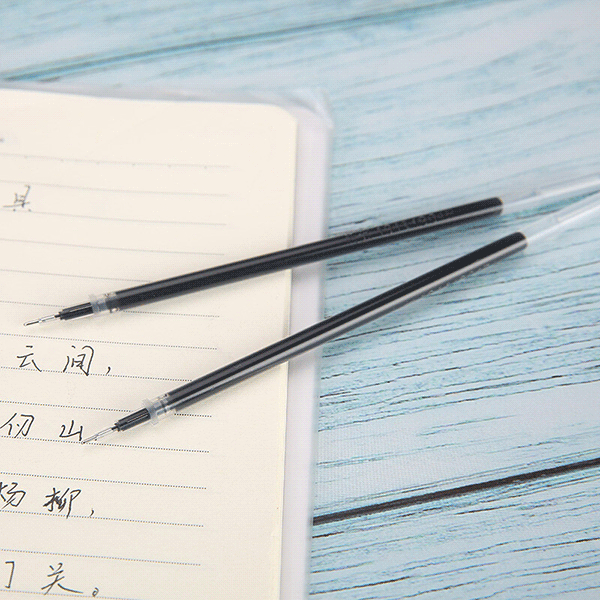 具
云间,
仞山
杨柳,
门关。